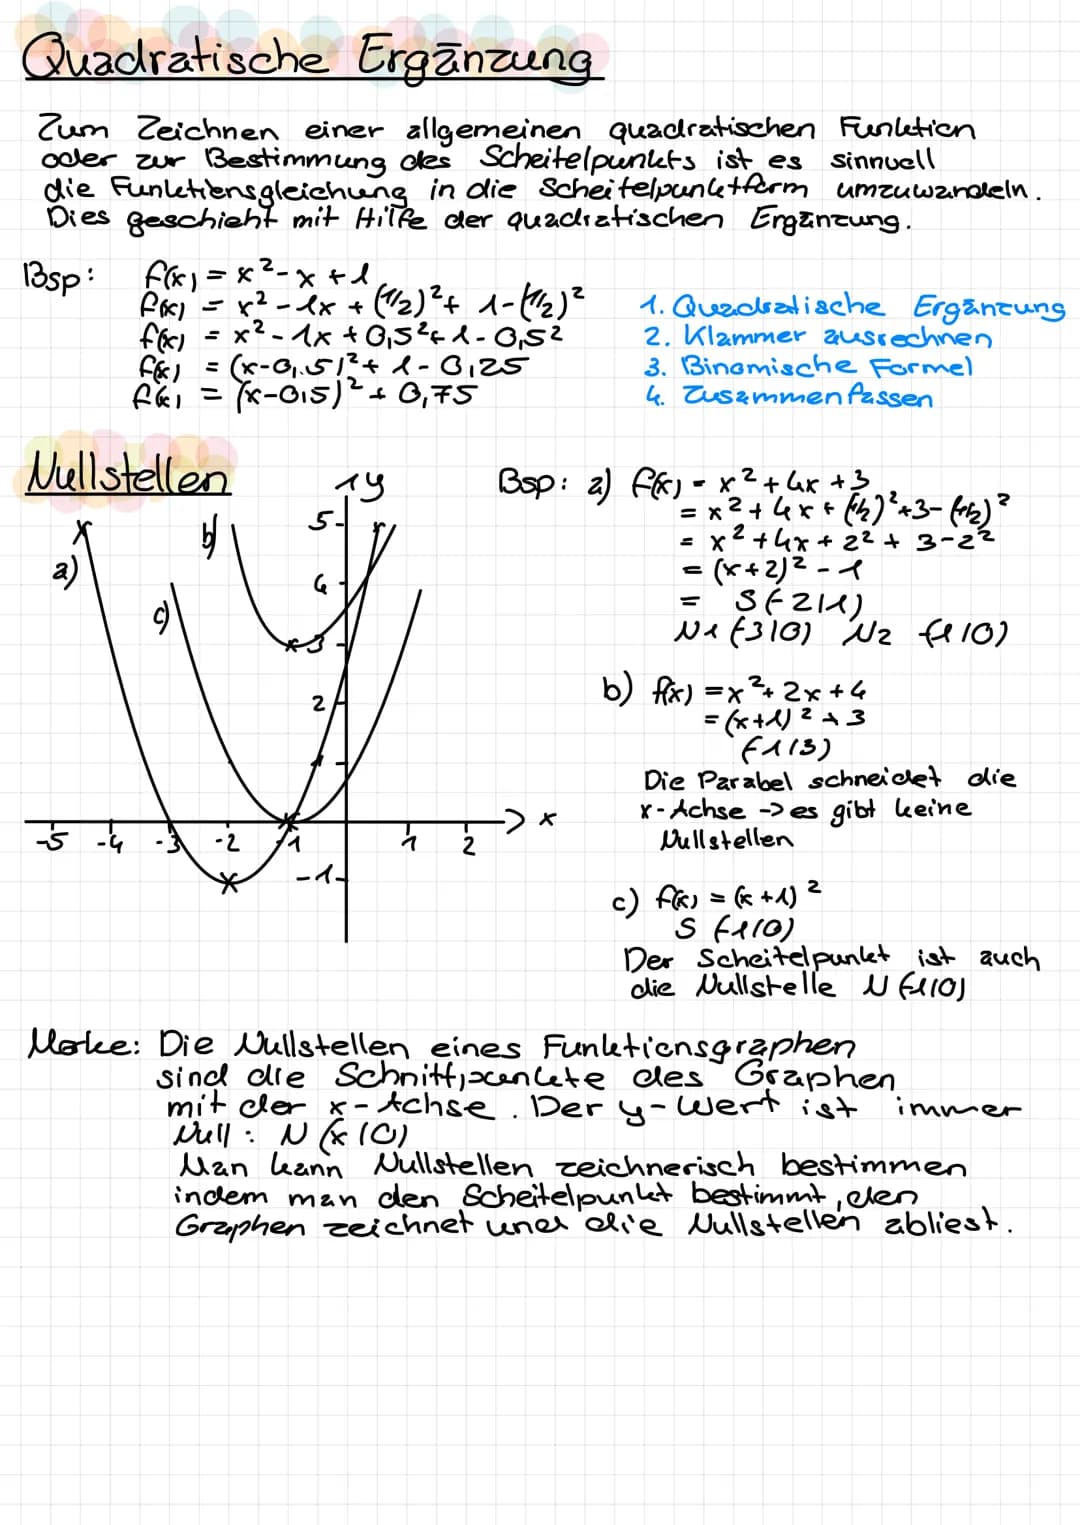 Quadratische Ergänzung
Zum Zeichnen einer allgemeinen quadratischen Funktion
oder zur Bestimmung des Scheitelpunkts ist es sinnvoll
die Funktionsgleichung in die Scheitelpunktform umzuwandeln.
Dies geschieht mit Hilfe der quadratischen Ergänzung.
Bsp: f(x) = x² - x + 1
f(x) = x² - 1x + (1/2)² + 1 - (1/2)²
1. Quadratische Ergänzung
f(x) = x² - 1x + 0,5² + 1 - 0,5²
2. Klammer ausrechnen
f(x) = (x-0,5)² + 1 - 0,25
3. Binomische Formel
f(x) = (x-0,5)² + 0,75
4. Zusammenfassen
Nullstellen
y
5
4
3
2
1
-1
-5 -4 -3 -2 -1 1 2
x
a)
b)
c)
Bsp: a) f(x) = x² + 4x + 3
= x² + 4x + (4/2)² + 3 - (4/2)²
= x² + 4x + 2² + 3 - 2²
= (x+2)² - 1
= S(-2|1)
N1 (-3|0) N2 (-1|0)
b) f(x) = x² + 2x + 4
= (x+1)² + 3
(-1|3)
Die Parabel schneidet die
x-Achse -> es gibt keine
Nullstellen
c) f(x) = (x+1)²
S (-1|0)
Der Scheitelpunkt ist auch
die Nullstelle N (-1|0)
Merke: Die Nullstellen eines Funktionsgraphen
sind die Schnittpunkte des Graphen
mit der x-Achse. Der y-Wert ist immer
Null: N (x|0)
Man kann Nullstellen zeichnerisch bestimmen
indem man den Scheitelpunkt bestimmt, den
Graphen zeichnet und die Nullstellen abliest.